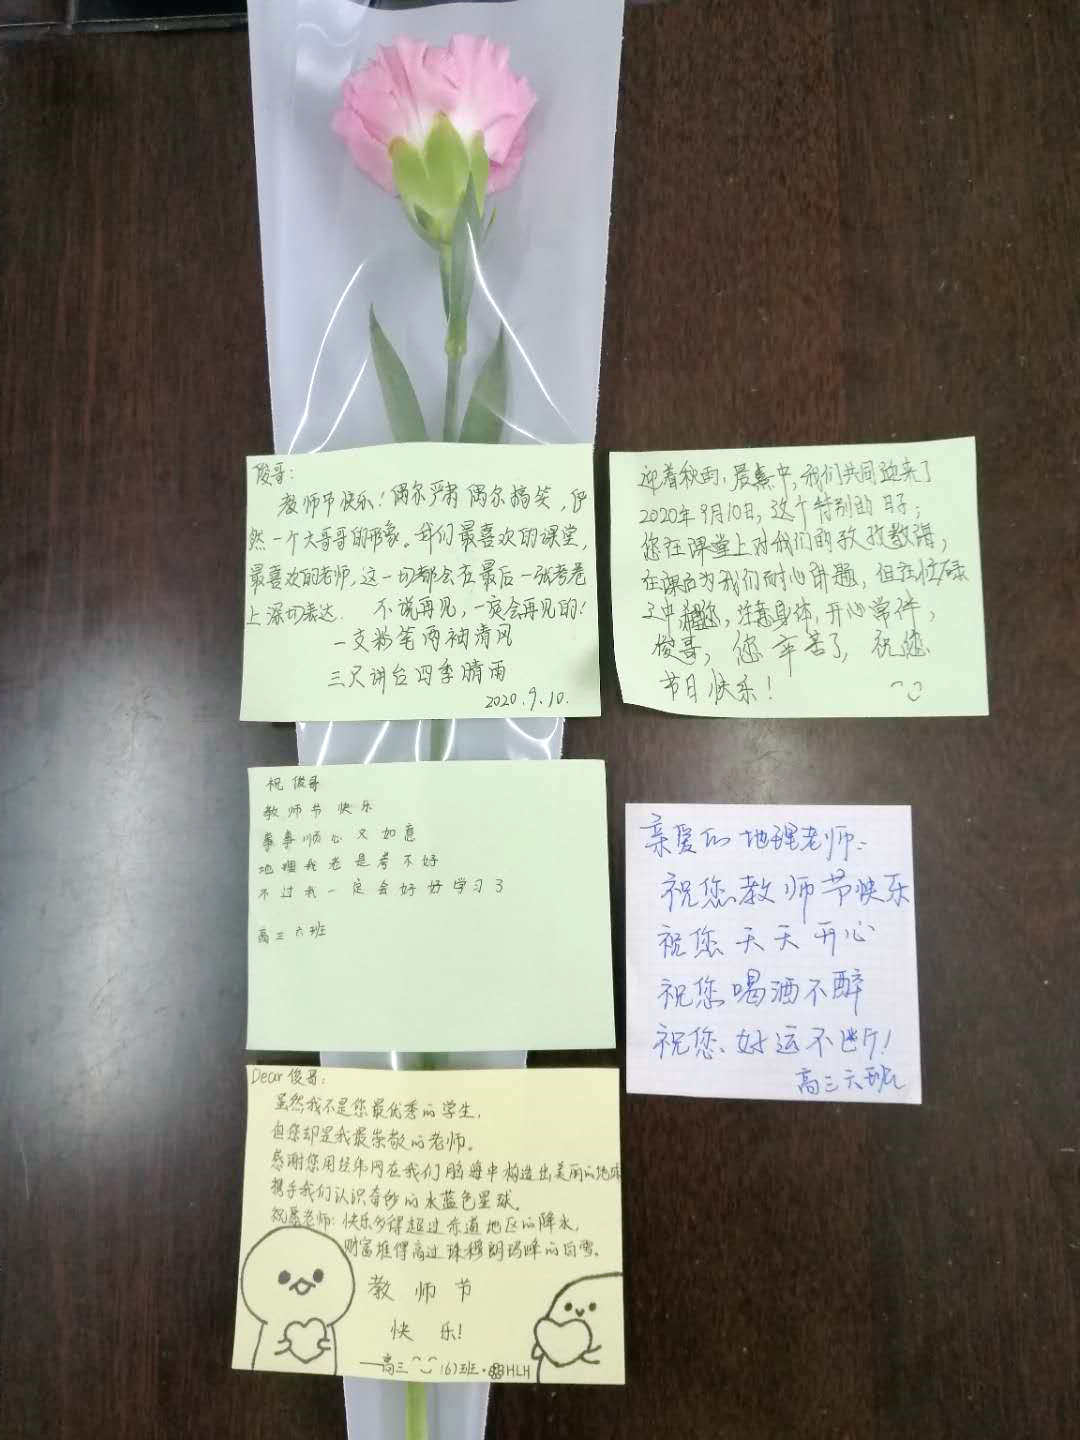 俊哥：
教师节快乐！偶尔严肃偶尔搞笑，俨
然一个大哥哥的形象。我们最喜欢的课堂，
最喜欢的老师，这一切都会在最后一张考卷
上深切表达. 不说再见，一定会再见的！
一支粉笔两袖清风
三尺讲台四季晴雨
2020.9.10.
迎着秋雨，晨熹中，我们共同迎来了
2020年9月10日，这个特别的日子；
您在课堂上对我们的孜孜教诲，
在课后为我们耐心讲题，但在忙碌
之中，注意身体，开心常伴，
俊哥，您辛苦了，祝您
节日快乐！
祝俊哥
教师节快乐
事事顺心又如意
地理我老是考不好
不过我一定会好好学习了
高三六班
亲爱的地理老师：
祝您教师节快乐
祝您天天开心
祝您喝酒不醉
祝您好运不断！
高三六班
Dear俊哥：
虽然我不是您最优秀的学生，
但您却是我最崇敬的老师。
感谢您用经纬网在我们脑海中构造出美丽的地球
携手我们认识奇妙的水蓝色星球。
祝愿老师：快乐多得超过赤道地区的降水，
财富堆得高过珠穆朗玛峰的白雪。
教师节
快乐！
——高三（6）班·HLH